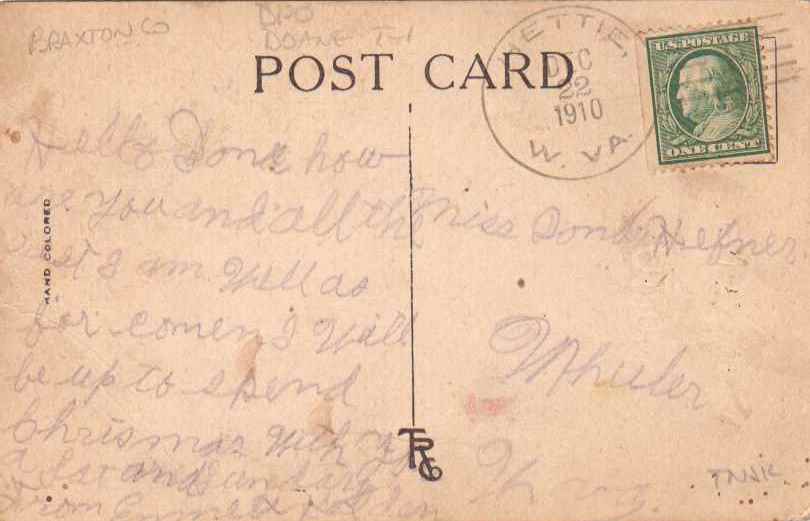 BRAXTON CO
DPO
DOANE I-1
POST CARD
METTIE,
DEC
22
1910
W. VA.
U.S. POSTAGE
ONE CENT
HAND COLORED
Hello Dona how
are you and all the
rest I am Well as
for comen I Will
be up to spend
Chrismas With
and
from
Miss Dona Hefner
Wheeler
W
TRG